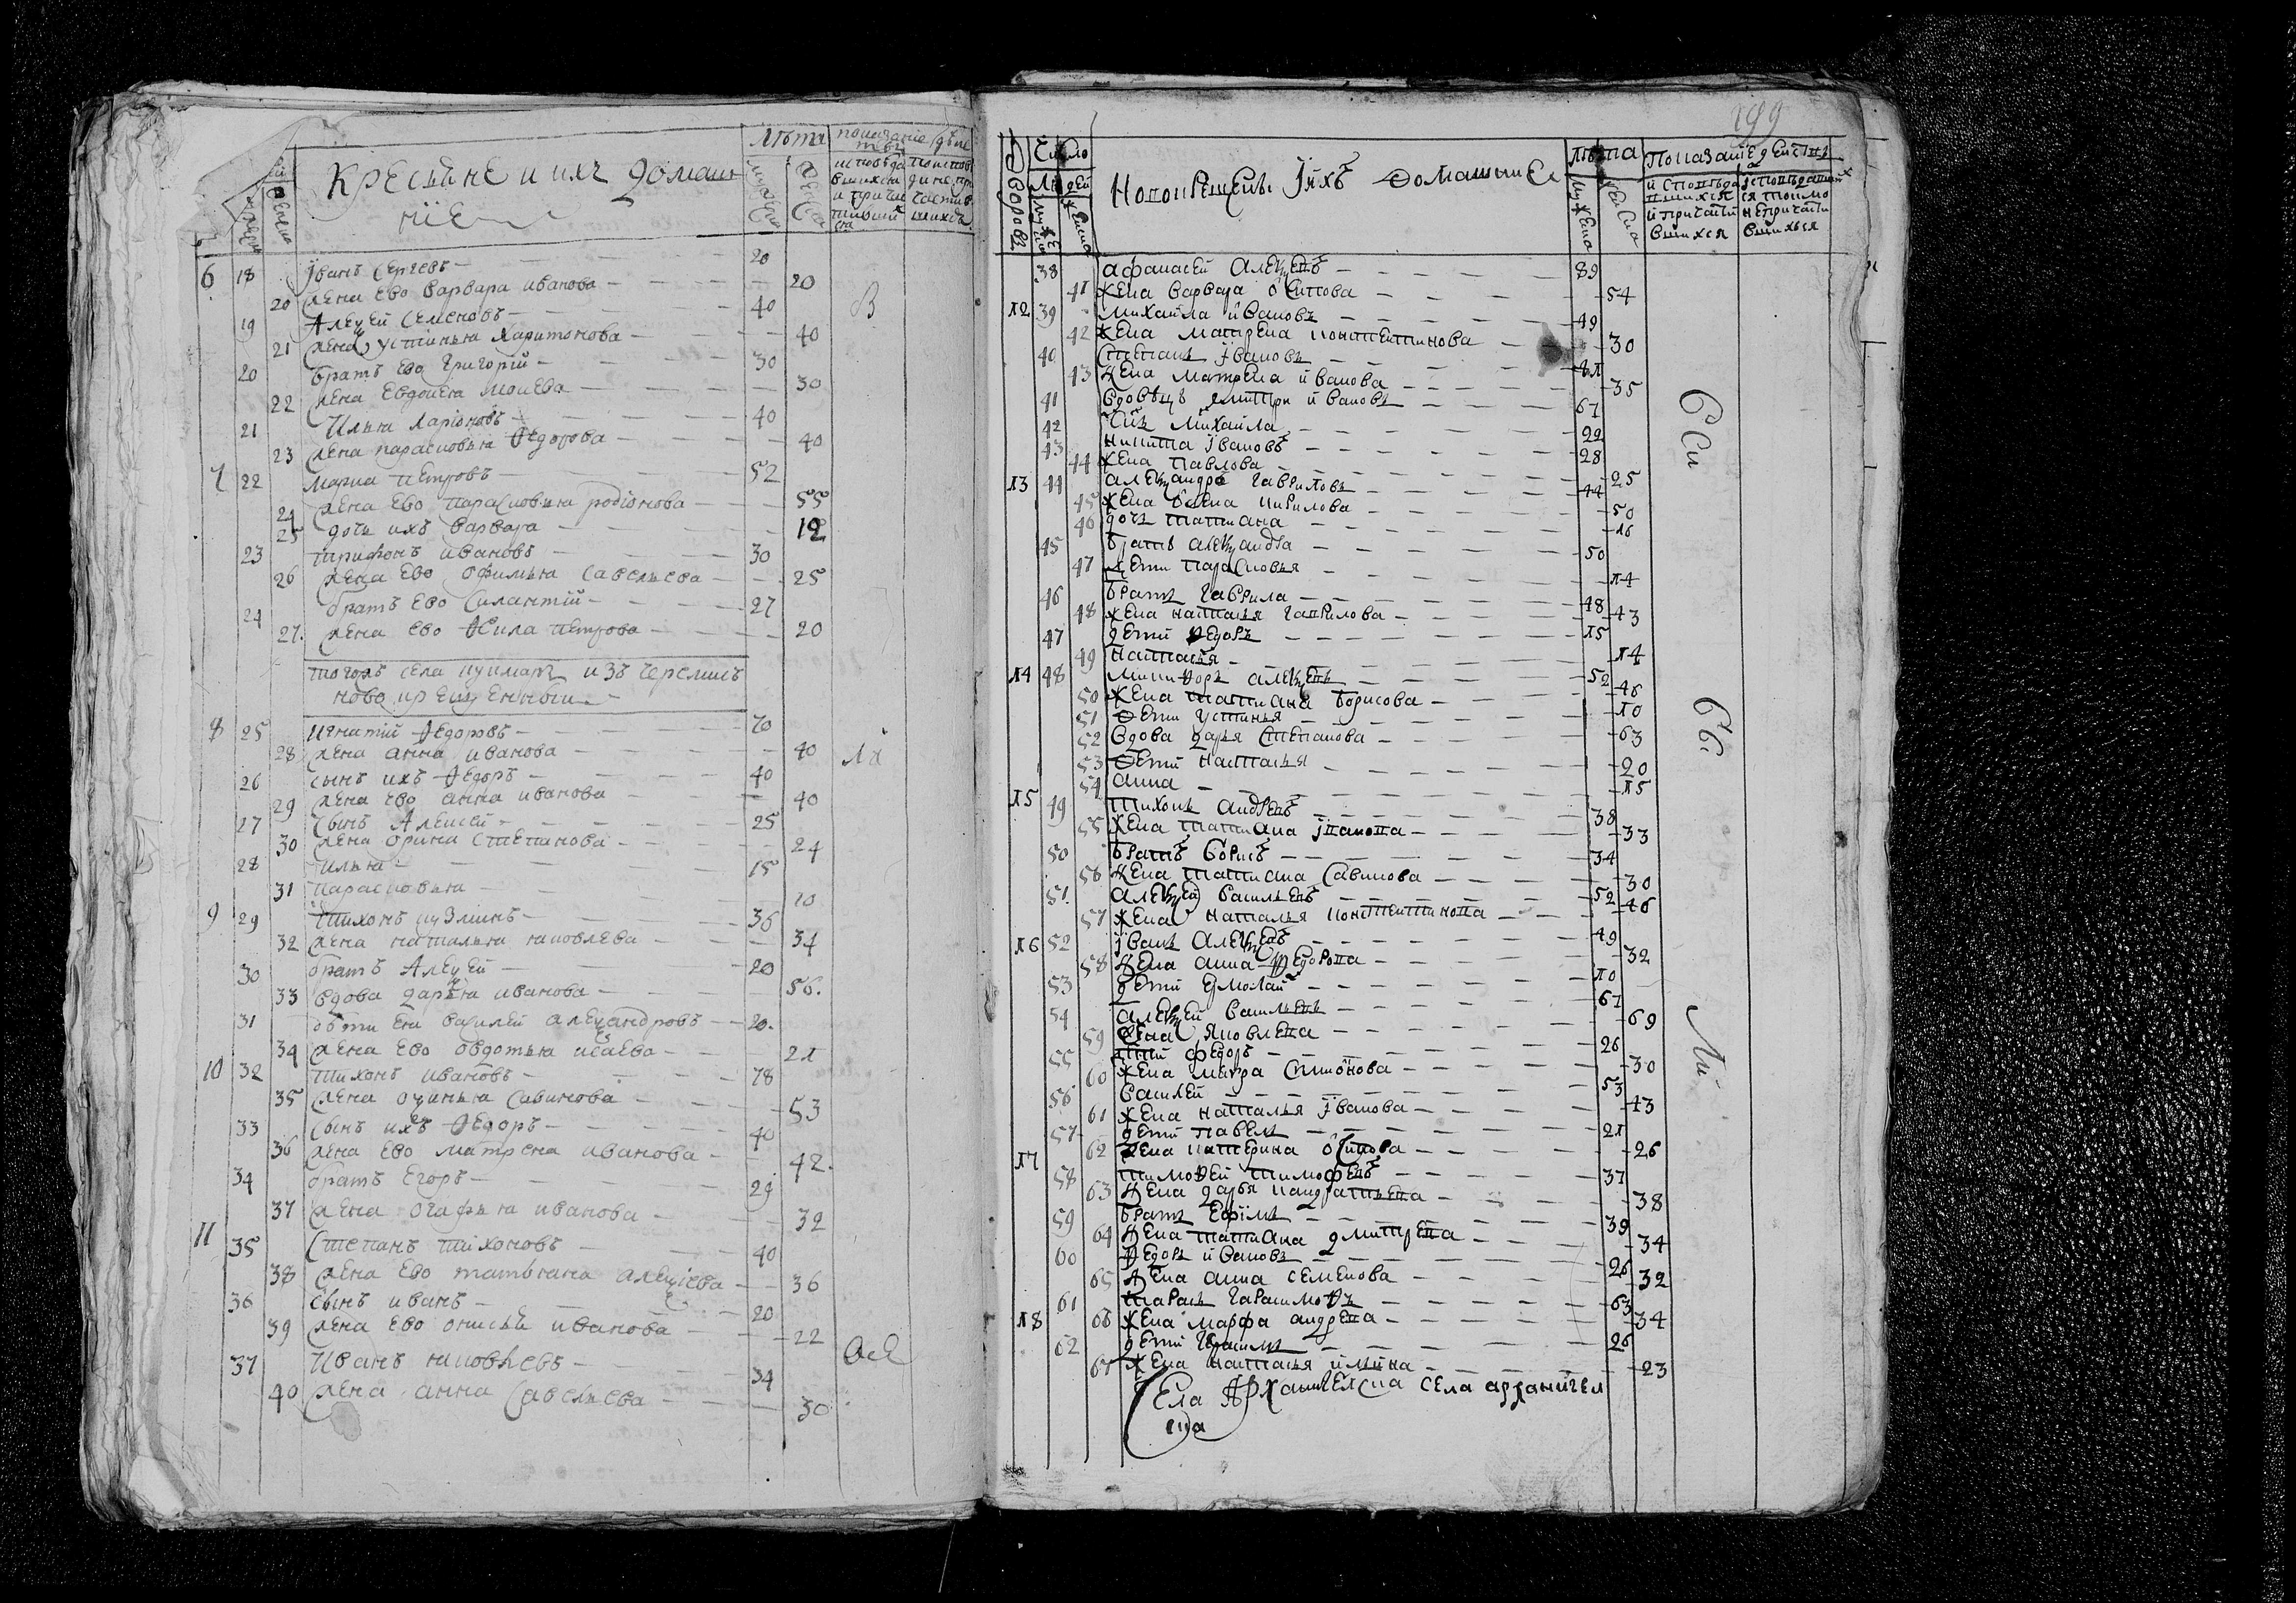 Крестьяне и ихъ домаш
ніе
Лѣта
мужеска
женска
показание дѣйс
твъ
исповѣда
вшихся
и прича
тивший
ся
6 18 Іванъ Сергеевъ 20
20 жена ево варвара иванова 20
19 Алеѯей Семеновъ 40
21 жена устинья харитонова 40
20 братъ ево григорій 30
22 жена Евдокея 30
21 Илья Ларіоновъ 40
23 жена парасковья Ѳедорова 40
7 22 петровъ 52
24 жена ево парасковья родіонова 55
25 дочь ихъ варвара 12
23 трифонъ ивановъ 30
26 жена ево офимья савельева 25
24 братъ ево Силантій 27
27. жена ево петрова 20
тогожъ села из черемисъ
новокрещенныи
8 25 Игнатій Ѳедоровъ 70
28 жена анна иванова 40
26 сынъ ихъ Ѳедоръ 40
29 жена ево анна иванова 40
27 сынъ Алексей 25
30 жена орина степанова 24
28 Илья 15
31 Парасковья 10
9 29 тихонъ кузминъ 36
32 жена наталья яковлева 34
30 братъ Алеѯей 20
33 вдова дарья иванова 56.
31 дѣти ея василей алеѯандровъ 20.
34 жена ево овдотья исаева 21
10 32 тихонъ ивановъ 78
35 жена савинова 53
33 сынъ ихъ Ѳедоръ 40
36 жена ево матрена иванова 42.
34 братъ Егоръ 29
37 жена огафья иванова 32
11 35 Степанъ тихоновъ 40
38 жена ево татьяна алеѯіева 36
36 сынъ иванъ 20
39 жена ево онисья иванова 22
37 Иванъ яковлевъ 34
40 жена анна савельева 30
199
Дворовъ
Число
Людей
мужеска
женска
Новокрещены Іихъ домашние
лѣта
мужеска
женска
Показание действа
исповѣда
вшихся
и причасти
вшихся
исповѣдавших
ся токмо
непричасти
вшихься
38 афанасей Алеѯеевъ 89
41 жена варвара осипова 54
12 39 михаила ивановъ 49
42 жена матрена константинова 30
40 Степанъ ївановъ
43 жена матрена иванова 35
41 вдовецъ дмитри ивановъ 67
42 Сынъ михайла 22
43 никита івановъ 28
44 жена павлова 25
13 44 алеѯандръ гавриловъ 44
45 жена кирилова 50
46 дочь татиана 16
45 братъ алеѯандра 50
47 жена парасковья 14
46 братъ гаврила 48
48 жена наталья гаврилова 43
47 дети Ѳедоръ 15
49 наталья 14
14 48 никифоръ алеѯеевъ 52
50 жена татиана борисова 46
51 дети устинья 10
52 вдова дарья степанова 63
53 дети наталья 20
54 анна 15
15 49 тихонъ андреевъ 38
55 жена татиана іванова 33
50 братъ борисъ 34
56 жена татиана савинова 30
51 алеѯей васильевъ 52
57 жена наталья константинова 46
16 52 іванъ алеѯеевъ 49
58 жена анна Ѳедорова 32
53 дети ермолай 10
54 алеѯей васильевъ 67
59 жена яковлева 69
55 дѣти федоръ 26
60 жена мавра симонова 30
56 василей 53
61 жена наталья іванова 43
57 дети павелъ 21
62 жена катерина осипова 26
17
58 тимоѳей тимофеевъ 37
63 жена дарья кандратьева 38
59 братъ ефимъ 39
64 жена татиана дмитрева 34
60 Ѳедоръ ивановъ 26
65 жена анна семенова 32
61 тарасъ гарасимовъ 63
18 66 жена марфа андреева 34
62 дети герасимъ 26
67 жена наталья ильина 23
Села Архангелска села архангел
ска